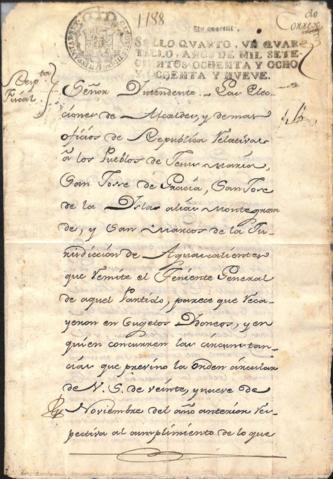 1788
Un quartillo
SELLO QVARTO, VN QVAR
TILLO, AÑOS DE MIL SETE-
CIENTOS OCHENTA Y OCHO
CHENTA Y NUEVE.
Fiscal
Señor Yntendente = Las Elec
ciones de Alcaldes, y demas
oficios de Republica Relativas
â los Pueblos de Jesus Maria,
San Jose de Gracia, San Jose
de la Ysla alias Montegran
de, y San Marcos de la Ju-
risdiccion de Aguascalientes
que Remite el Teniente General
de aquel Partido, parece que Reca-
yeron en Sugetos Ydoneos, y en
quien concurren las circunstan
cias que previno la orden circular
de V. S. de veinte, y nueve de
Noviembre del año anterior Res-
pectiva al cumplimiento de lo que